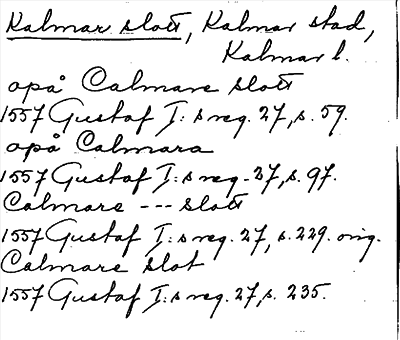 Kalmar slott, Kalmar stad,
Kalmar l.
opå Calmare slott
1557 Gustaf I:s reg. 27, s. 59.
opå Calmara
1557 Gustaf I:s reg. 27, s. 97.
Calmare --- slott
1557 Gustaf I:s reg. 27, s. 229. orig.
Calmare slot
1557 Gustaf I:s reg. 27, s. 235.